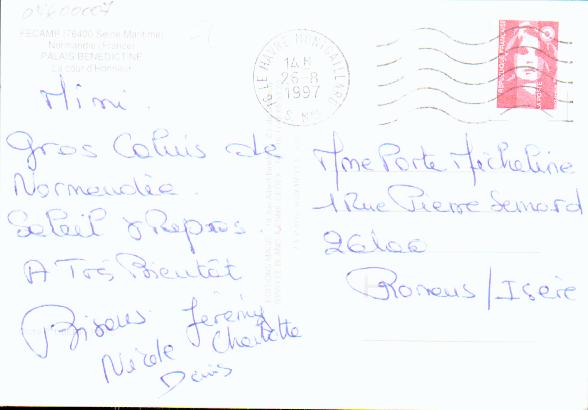 04600007
FECAMP (76400 Seine Maritime)
Normandie (France)
PALAIS BENEDICTINE
La cour d'Honneur
76 LE HAVRE MONTGAILLARD
14 H
26-8
1997
S. Mme
REPUBLIQUE FRANÇAISE
LA POSTE
Mimi.
Gros Calins de
Normandie.
Soleil & Repos.
A Très Bientôt
Bisous. Jérémy
Nicole Charlotte
Denis
Mme Porte Micheline
1 Rue Pierre Semard
26100
Romans / Isère